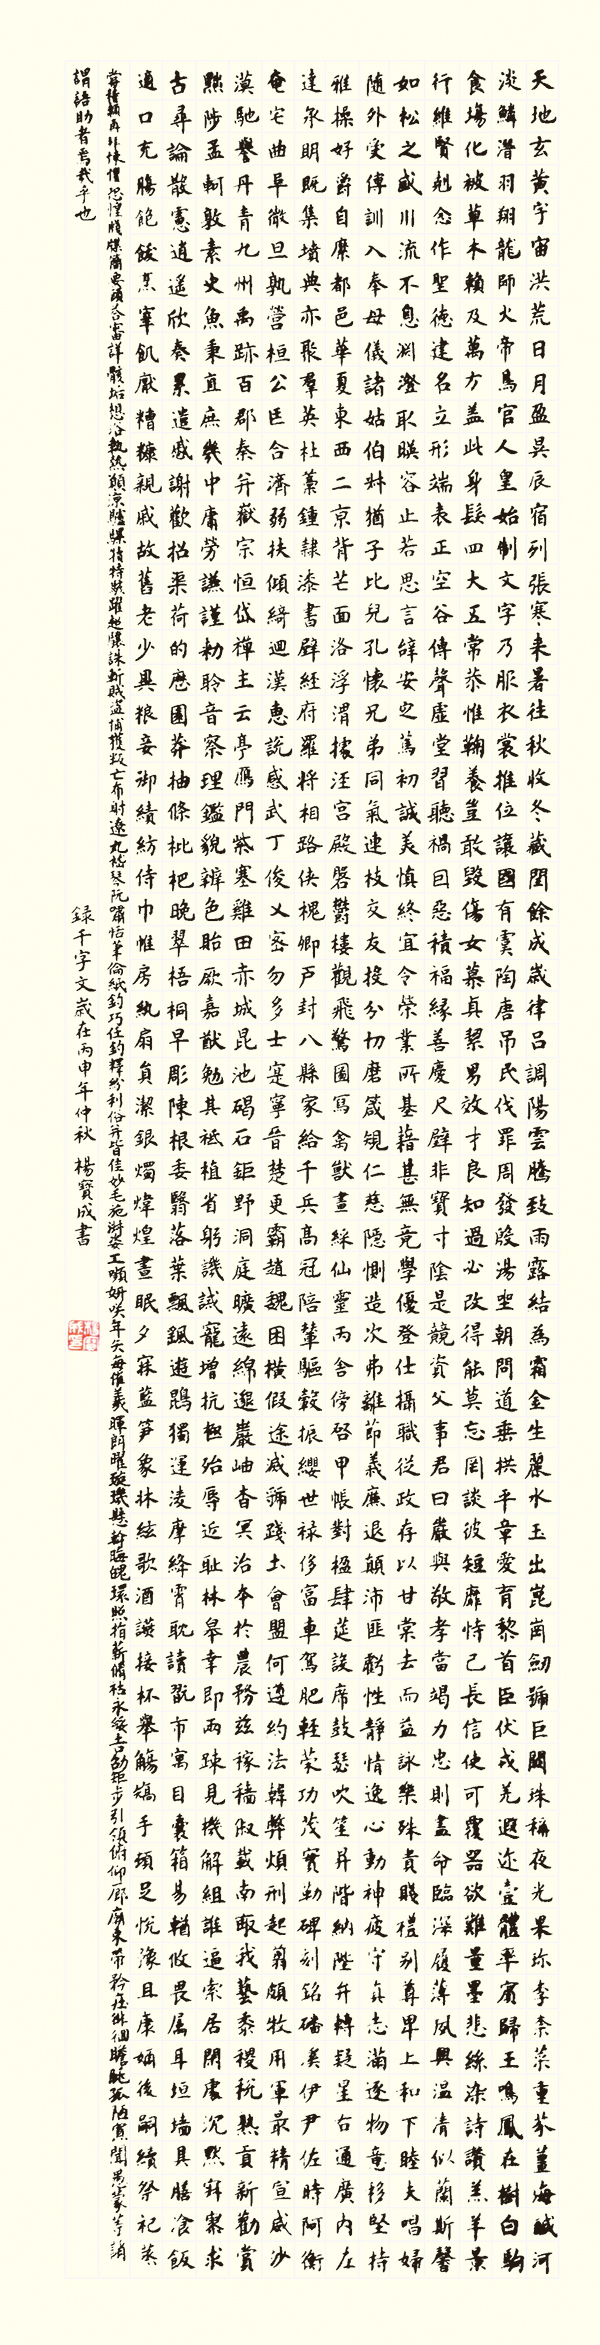 天地玄黃宇宙洪荒日月盈昃辰宿列張寒來暑往秋收冬藏閏餘成歲律呂調陽雲騰致雨露結為霜金生麗水玉出崑崗劒號巨闕珠稱夜光果珍李柰菜重芥薑海鹹河
淡鱗潛羽翔龍師火帝鳥官人皇始制文字乃服衣裳推位讓國有虞陶唐吊民伐罪周發殷湯坐朝問道垂拱平章愛育黎首臣伏戎羌遐迩壹體率賓歸王鳴鳳在樹白駒
食場化被草木賴及萬方蓋此身髮四大五常恭惟鞠養豈敢毀傷女慕貞絜男效才良知過必改得能莫忘罔談彼短靡恃己長信使可覆器欲難量墨悲絲染詩讚羔羊景
行維賢剋念作聖德建名立形端表正空谷傳聲虛堂習聽禍因惡積福緣善慶尺璧非寶寸陰是競資父事君曰嚴與敬孝當竭力忠則盡命臨深履薄夙興溫凊似蘭斯馨
如松之盛川流不息淵澄取暎容止若思言辭安定篤初誠美慎終宜令榮業所基藉甚無竟學優登仕攝職從政存以甘棠去而益詠樂殊貴賤禮別尊卑上和下睦夫唱婦
隨外受傅訓入奉母儀諸姑伯叔猶子比兒孔懷兄弟同氣連枝交友投分切磨箴規仁慈隱惻造次弗離節義廉退顛沛匪虧性靜情逸心動神疲守真志滿逐物意移堅持
雅操好爵自縻都邑華夏東西二京背芒面洛浮渭據涇宮殿磐鬱樓觀飛驚圖寫禽獸畫綵仙靈丙舍傍啓甲帳對楹肆筵設席鼓瑟吹笙升階納陛弁轉疑星右通廣內左
達承明既集墳典亦聚羣英杜稾鍾隸漆書壁經府羅將相路俠槐卿戶封八縣家給千兵高冠陪輦驅轂振纓世祿侈富車駕肥輕策功茂實勒碑刻銘磻溪伊尹佐時阿衡
奄宅曲阜微旦孰營桓公匡合濟弱扶傾綺迴漢惠說感武丁俊乂密勿多士寔寧晉楚更霸趙魏困橫假途滅虢踐土會盟何遵約法韓弊煩刑起翦頗牧用軍最精宣威沙
漠馳譽丹青九州禹跡百郡秦并嶽宗恒岱禪主云亭鴈門紫塞雞田赤城昆池碣石鉅野洞庭曠遠綿邈巖岫杳冥治本於農務茲稼穡俶載南畝我藝黍稷稅熟貢新勸賞
黜陟孟軻敦素史魚秉直庶幾中庸勞謙謹勅聆音察理鑑貌辨色貽厥嘉猷勉其祗植省躬譏誡寵增抗極殆辱近恥林皋幸即兩疎見機解組誰逼索居閒處沉默寂寥求
古尋論散慮逍遙欣奏累遣慼謝歡招渠荷的歷園莽抽條枇杷晚翠梧桐早彫陳根委翳落葉飄颻遊鵾獨運凌摩絳霄耽讀翫市寓目囊箱易輶攸畏属耳垣墙具膳飡飯
適口充腸飽飫烹宰飢厭糟糠親戚故舊老少異粮妾御績紡侍巾帷房紈扇員潔銀燭煒煌晝眠夕寐藍笋象牀絃歌酒讌接杯舉觴矯手頓足悅豫且康嫡後嗣續祭祀蒸
嘗稽顙再拜悚懼恐惶牋牒簡要顧答審詳骸垢想浴執熱願涼驢騾犢特駭躍超驤誅斬賊盜捕獲叛亡布射遼丸嵇琴阮嘯恬筆倫紙鈞巧任釣釋紛利俗并皆佳妙毛施淑姿工嚬妍咲年矢每催羲暉朗曜璇璣懸斡晦魄環照指薪脩祜永綏吉劭矩步引領俯仰廊廟束帶矜莊徘徊瞻眺孤陋寡聞愚蒙等誚
謂語助者焉哉乎也
錄千字文歲在丙申年仲秋 楊寶成書